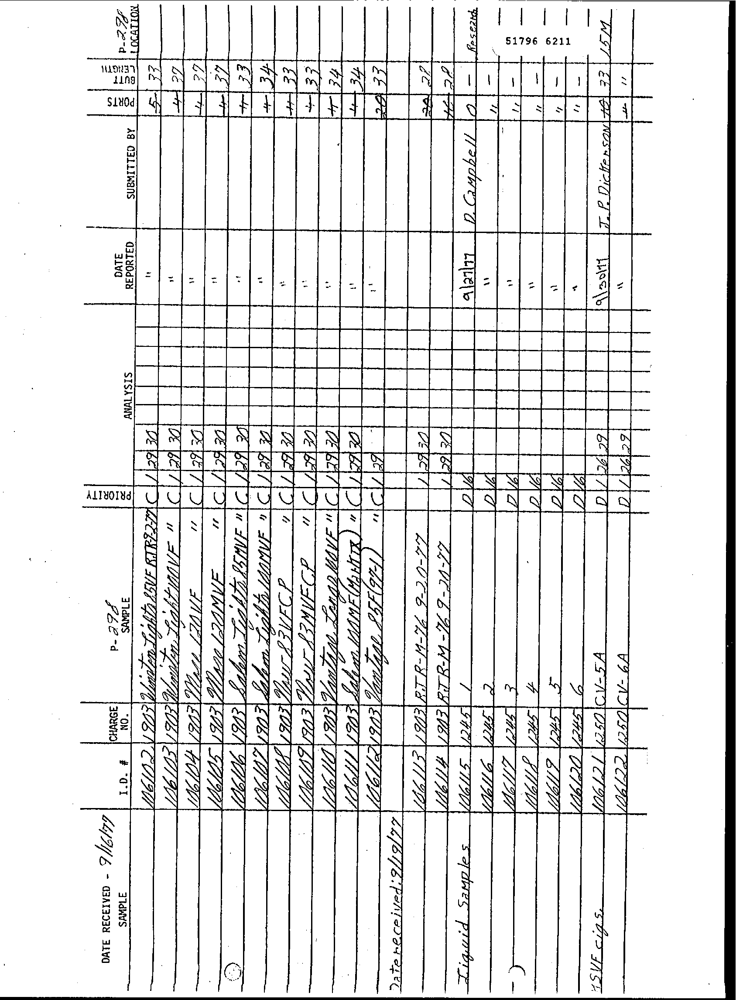 DATE RECEIVED - 9/16/77
SAMPLE I.D. # CHARGE NO. P-298 SAMPLE PRIORITY ANALYSIS DATE REPORTED SUBMITTED BY PORTS BUTT LENGTH P-298 LOCATION
106102 1903 Winston Lights 85VF RJR 9-2-77 C 1 29 30 " 5 33
106103 1903 Winston Lights 100VF " C 1 29 30 " 4 37
106104 1903 More 120VF " C 1 29 30 " 4 37
106105 1903 More 120MVF " C 1 29 30 " 4 37
106106 1903 Salem Lights 85MVF " C 1 29 30 " 4 33
106107 1903 Salem Lights 100MVF " C 1 29 30 " 4 34
106108 1903 Now-83VFCP " C 1 29 30 " 4 33
106109 1903 Now-83MVFCP " C 1 29 30 " 4 33
106110 1903 Vantage Longs 100VF " C 1 29 30 " 4 34
106111 1903 Salem 100MF " C 1 29 30 " 4 34
106112 1903 Vantage 85F " C 1 29 " 20 33
Date received: 9/19/77
106113 1903 RJR-M-76 9-20-77 1 29 30 28
106114 1903 RJR-M-76 9-20-77 1 29 30 28
Liquid Samples 106115 1245 1 D 16 9/27/77 D. Campbell 0 - Research
106116 1245 2 D 16 " " -
106117 1245 3 D 16 " " -
106118 1245 4 D 16 " " -
106119 1245 5 D 16 " " -
106120 1245 6 D 16 " " -
51796 6211
85VF cigs. 106121 1250 CV-5A D 1 26 29 9/30/77 J. P. Dickerson 33 15M
106122 1250 CV-6A D 1 26 29 " 4 "